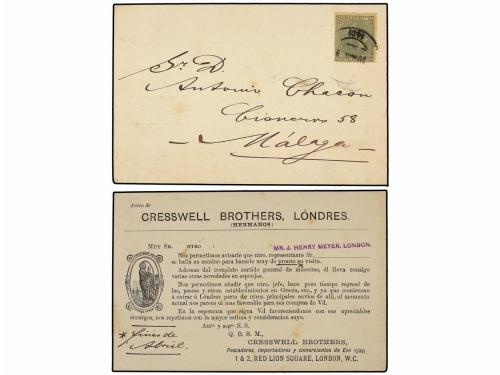 Sr. D.
Antonio Chacon
Cisneros 58
Málaga
Aviso de
CRESSWELL BROTHERS, LÓNDRES.
(HERMANOS)
MUY SR. NTRO:
MR. J. HENRY MEYER, LONDON.
Nos permetimos avisarle que ntro. representante Sr.
se balla en camino para hacerle muy de pronto su visita.
Ademas del completo surtido general de muestras, él lleva consigo
varias otras novedades en esponjas.
Nos permetimos añadir que ntro. jefe, hace poco tiempo regresó de
las, pescas y otros establecimientos en Grecia, etc., y ya que comienzan
á cairar á Lóndres parte de otros principales envíos de allí, el momento
actual nos parece el mas favorable para sus compras de Vd.
En la esperanza que sigua Vd favoreciendonos con sus apreciables
encargos, nos repetimos con la mayor estima y consideracion suyo.
Q. B. S. M.,
CRESSWELL BROTHERS,
Pescadores, importadores y comerciantes de Esn
1 & 2, RED LION SQUARE, LONDON, W.C.
Fines de
Abril.